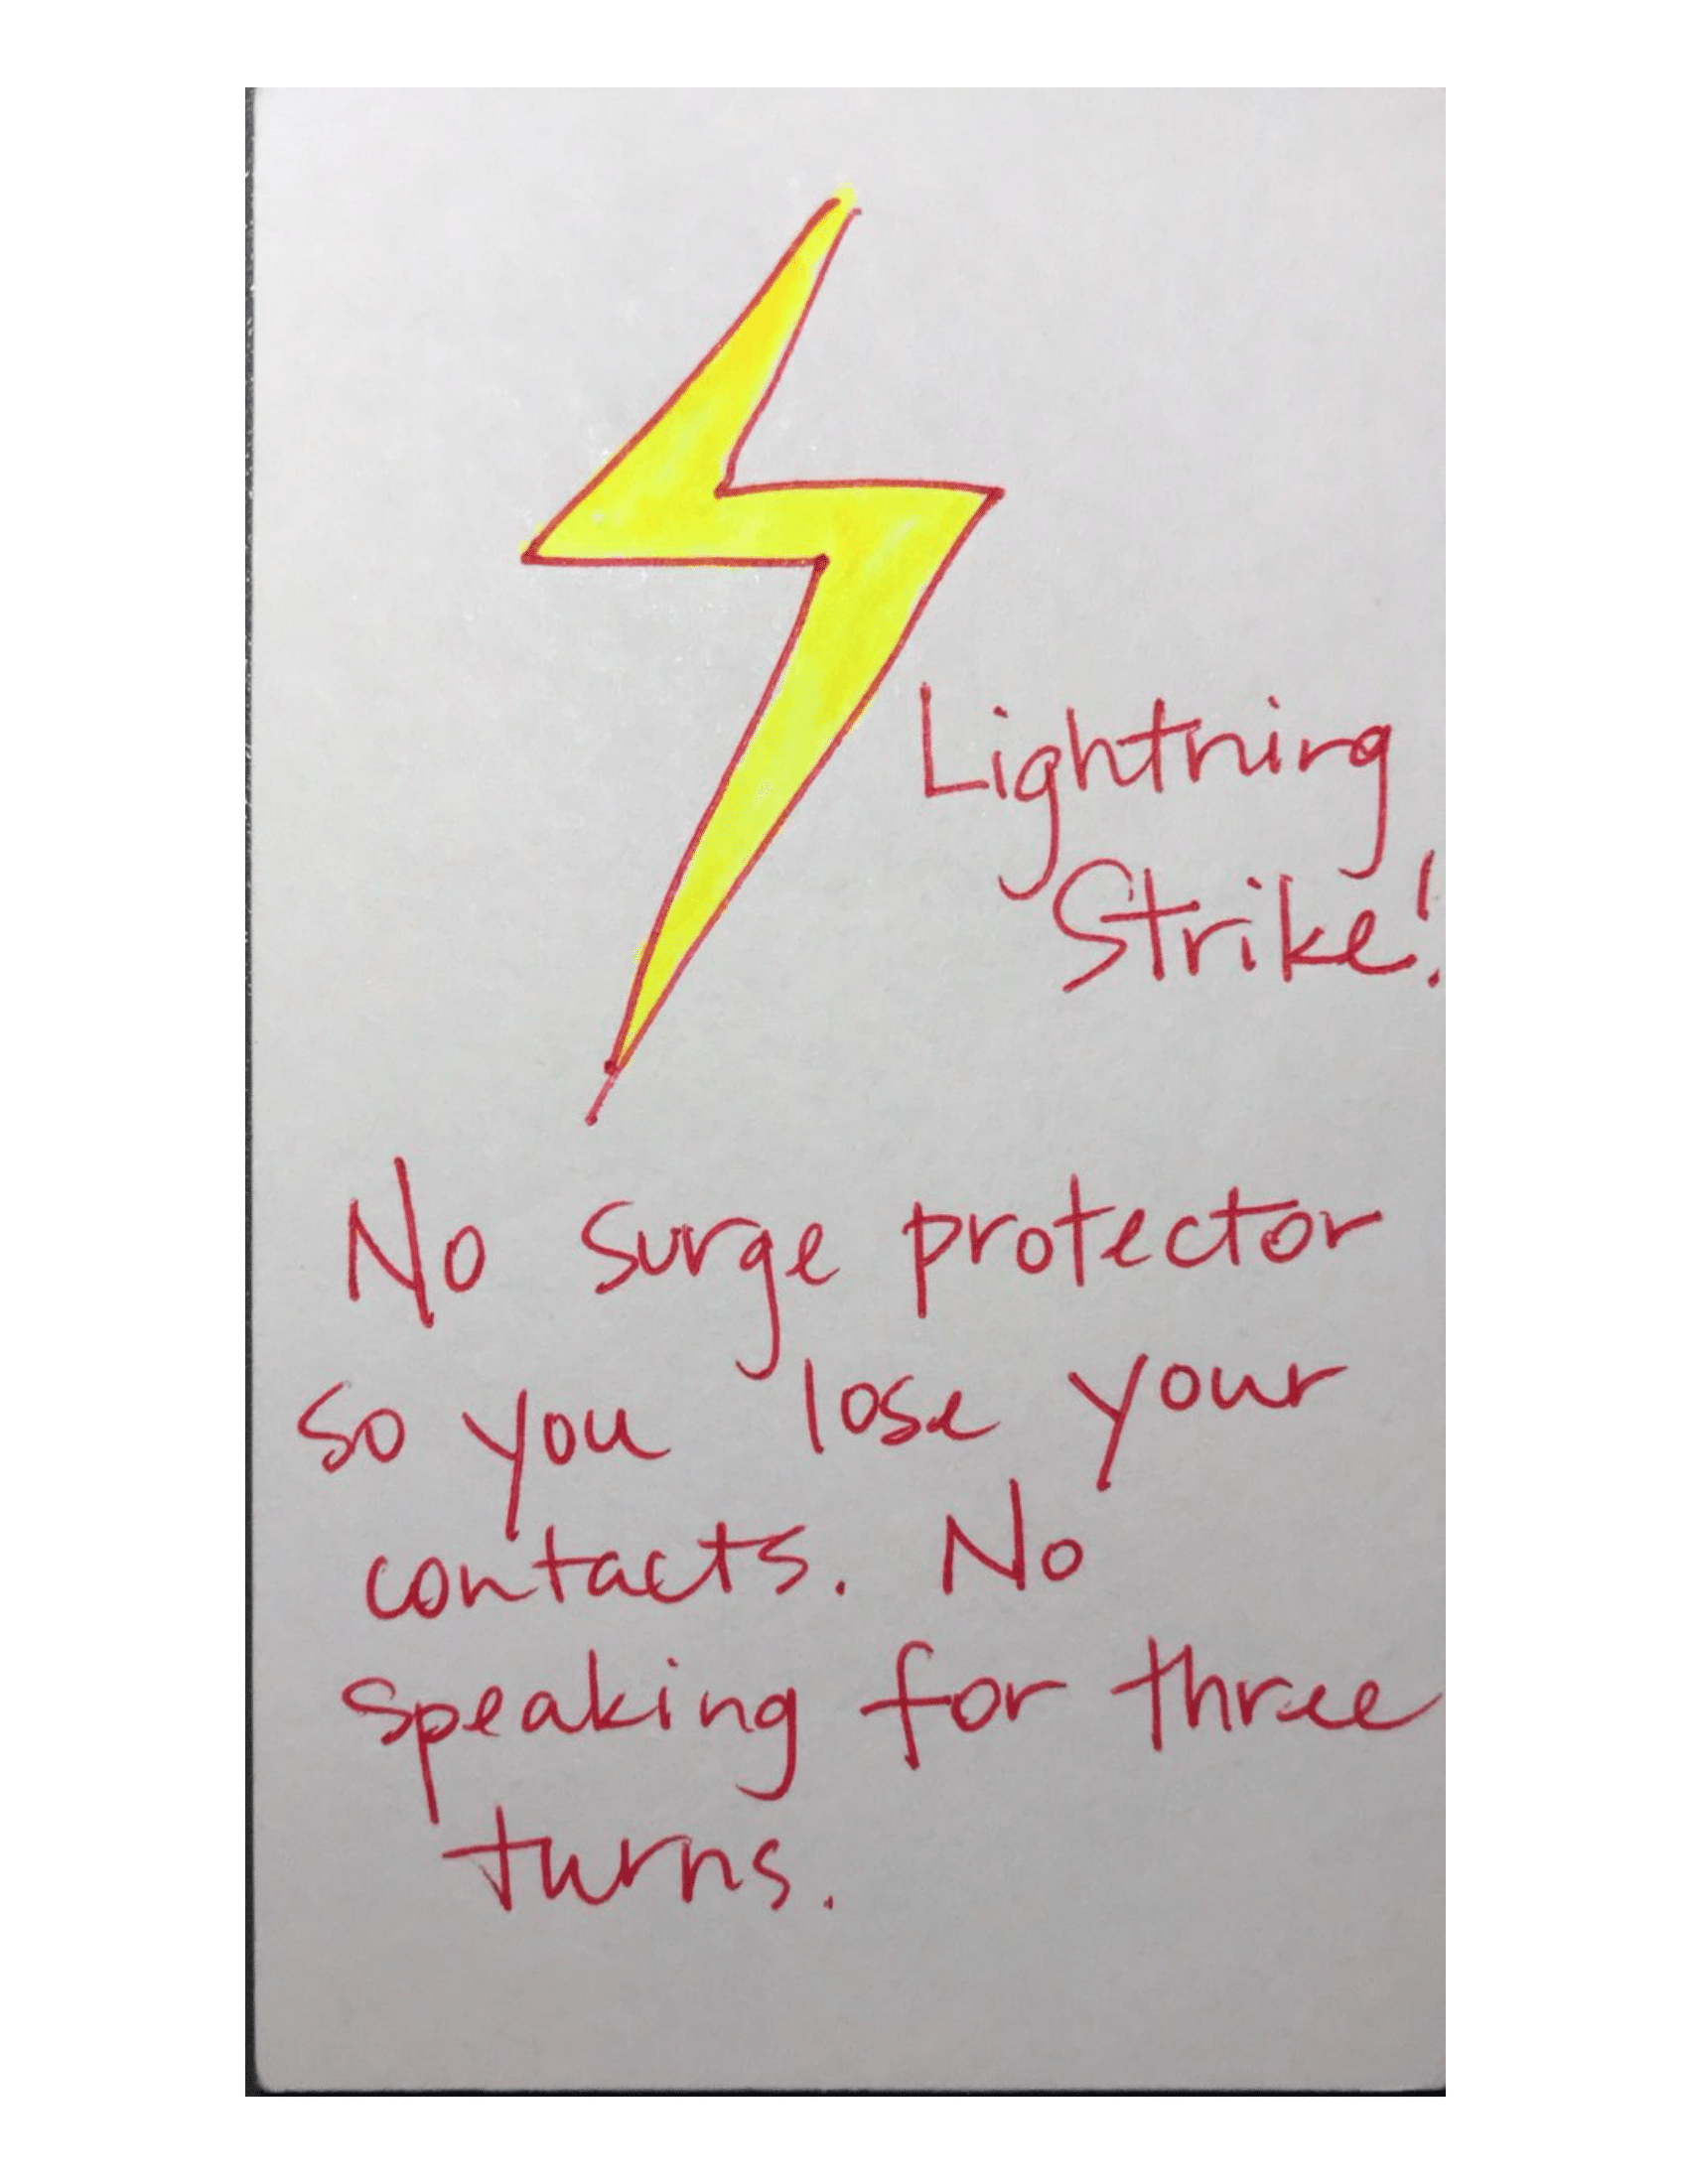 Lightning
Strike!
No surge protector
so you lose your
contacts. No
speaking for three
turns.